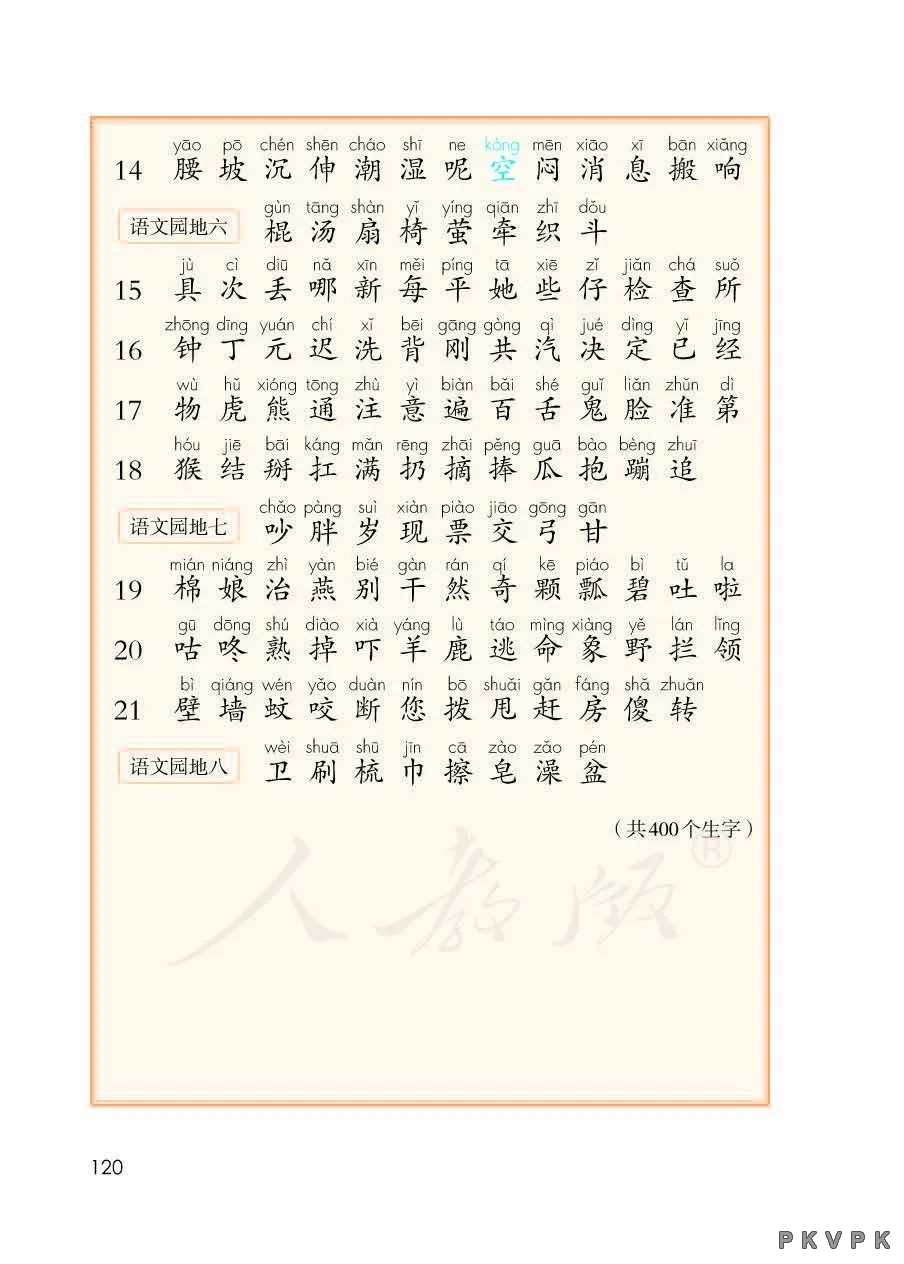 yāo pō chén shēn cháo shī ne kòng mēn xiāo xī bān xiǎng
14 腰 坡 沉 伸 潮 湿 呢 空 闷 消 息 搬 响
gùn tāng shàn yǐ yíng qiān zhī dǒu
语文园地六 棍 汤 扇 椅 萤 牵 织 斗
jù cì diū nǎ xīn měi píng tā xiē zǐ jiǎn chá suǒ
15 具 次 丢 哪 新 每 平 她 些 仔 检 查 所
zhōng dīng yuán chí xǐ bēi gāng gòng qì jué dìng yǐ jīng
16 钟 丁 元 迟 洗 背 刚 共 汽 决 定 已 经
wù hǔ xióng tōng zhù yì biàn bǎi shé guǐ liǎn zhǔn dì
17 物 虎 熊 通 注 意 遍 百 舌 鬼 脸 准 第
hóu jiē bāi káng mǎn rēng zhāi pěng guā bào bèng zhuī
18 猴 结 掰 扛 满 扔 摘 捧 瓜 抱 蹦 追
chǎo pàng suì xiàn piào jiāo gōng gān
语文园地七 吵 胖 岁 现 票 交 弓 甘
mián niáng zhì yàn bié gàn rán qí kē piáo bì tǔ la
19 棉 娘 治 燕 别 干 然 奇 颗 瓢 碧 吐 啦
gū dōng shú diào xià yáng lù táo mìng xiàng yě lán lǐng
20 咕 咚 熟 掉 吓 羊 鹿 逃 命 象 野 拦 领
bì qiáng wén yǎo duàn nín bō shuǎi gǎn fáng shǎ zhuǎn
21 壁 墙 蚊 咬 断 您 拨 甩 赶 房 傻 转
wèi shuā shū jīn cā zào zǎo pén
语文园地八 卫 刷 梳 巾 擦 皂 澡 盆
（共400个生字）
人教版®
120
PKVPK